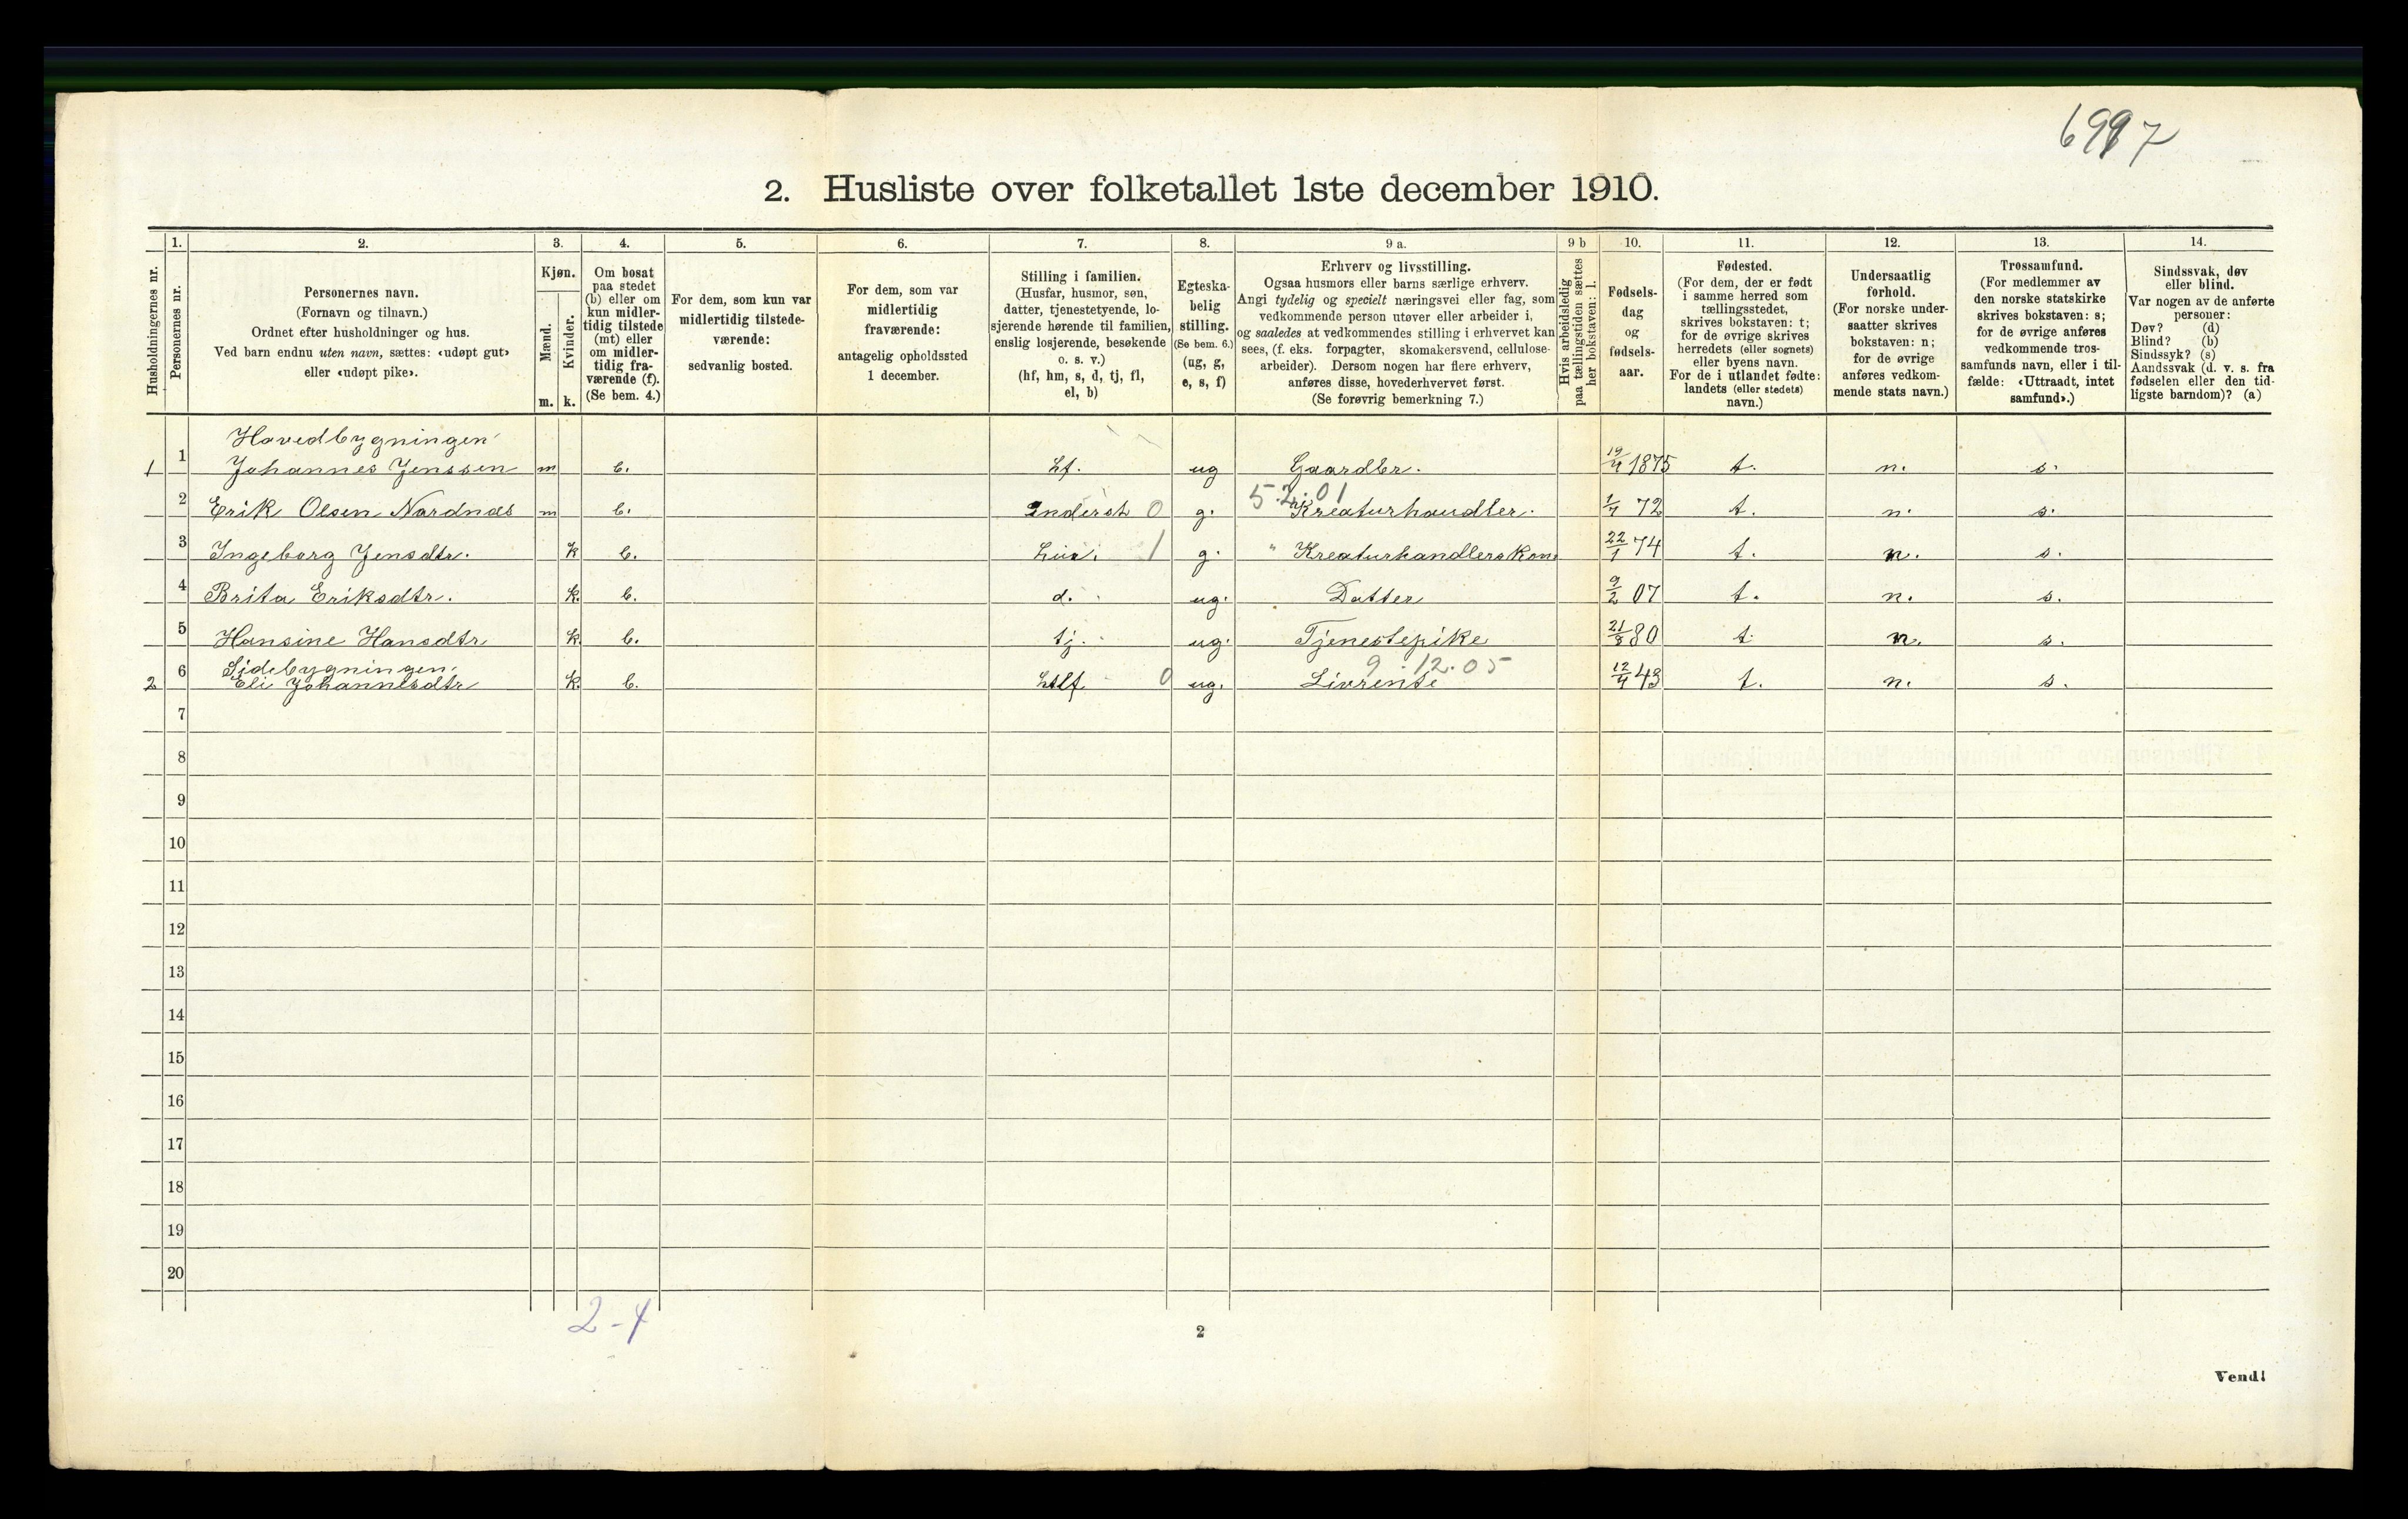 6997
2. Husliste over folketallet 1ste december 1910.
Husholdningernes nr.
1. Personernes nr.
2. Personernes navn.
(Fornavn og tilnavn.)
Ordnet efter husholdninger og hus.
Ved barn endnu uten navn, sættes: «udøpt gut»
eller «udøpt pike».
3. Kjøn.
Mænd. m.
Kvinder. k.
4. Om bosat
paa stedet
(b) eller om
kun midler-
tidig tilstede
(mt) eller
om midler-
tidig fra-
værende (f).
(Se bem. 4.)
5. For dem, som kun var
midlertidig tilstede-
værende:
sedvanlig bosted.
6. For dem, som var
midlertidig
fraværende:
antagelig opholdssted
1 december.
7. Stilling i familien.
(Husfar, husmor, søn,
datter, tjenestetyende, lo-
sjerende hørende til familien,
enslig losjerende, besøkende
o. s. v.)
(hf, hm, s, d, tj, fl,
el, b)
8. Egteska-
belig
stilling.
(Se bem. 6.)
(ug, g,
e, s, f)
9 a. Erhverv og livsstilling.
Ogsaa husmors eller barns særlige erhverv.
Angi tydelig og specielt næringsvei eller fag, som
vedkommende person utøver eller arbeider i,
og saaledes at vedkommendes stilling i erhvervet kan
sees, (f. eks. forpagter, skomakersvend, cellulose-
arbeider). Dersom nogen har flere erhverv,
anføres disse, hovederhvervet først.
(Se forøvrig bemerkning 7.)
9 b Hvis arbeidsledig
paa tællingstiden sættes
her bokstaven: l.
10. Fødsels-
dag
og
fødsels-
aar.
11. Fødested.
(For dem, der er født
i samme herred som
tællingsstedet,
skrives bokstaven: t;
for de øvrige skrives
herredets (eller sognets)
eller byens navn.
For de i utlandet fødte:
landets (eller stedets)
navn.)
12. Undersaatlig
forhold.
(For norske under-
saatter skrives
bokstaven: n;
for de øvrige
anføres vedkom-
mende stats navn.)
13. Trossamfund.
(For medlemmer av
den norske statskirke
skrives bokstaven: s;
for de øvrige anføres
vedkommende tros-
samfunds navn, eller i til-
fælde: «Uttraadt, intet
samfund».)
14. Sindssvak, døv
eller blind.
Var nogen av de anførte
personer:
Døv? (d)
Blind? (b)
Sindssyk? (s)
Aandssvak (d. v. s. fra
fødselen eller den tid-
ligste barndom)? (a)
Hovedbygningen
1 1 Johannes Jenssen m b. hf. ug Gaardbr. 19/4 1875 t. n. s.
5.2.01
2 Erik Olsen Nordnæs m b. 0 g. Kreaturhandler. 1/7 72 t. n. s.
3 Ingeborg Jensdtr. k b. 1 g. " Kreaturhandlerskone 22/1 74 t. n. s.
4 Brita Eriksdtr. k. b. d. ug. Datter 9/2 07 t. n. s.
5 Hansine Hansdtr k. b. tj. ug. Tjenestepike 21/8 80 t. n. s.
Sidebygningen.
9.12.05
2 6 Eli Johannesdtr k. b. 0 ug. Livrente 12/4 43 t. n. s.
7
8
9
10
11
12
13
14
15
16
17
18
19
20
2-4
2
Vend!